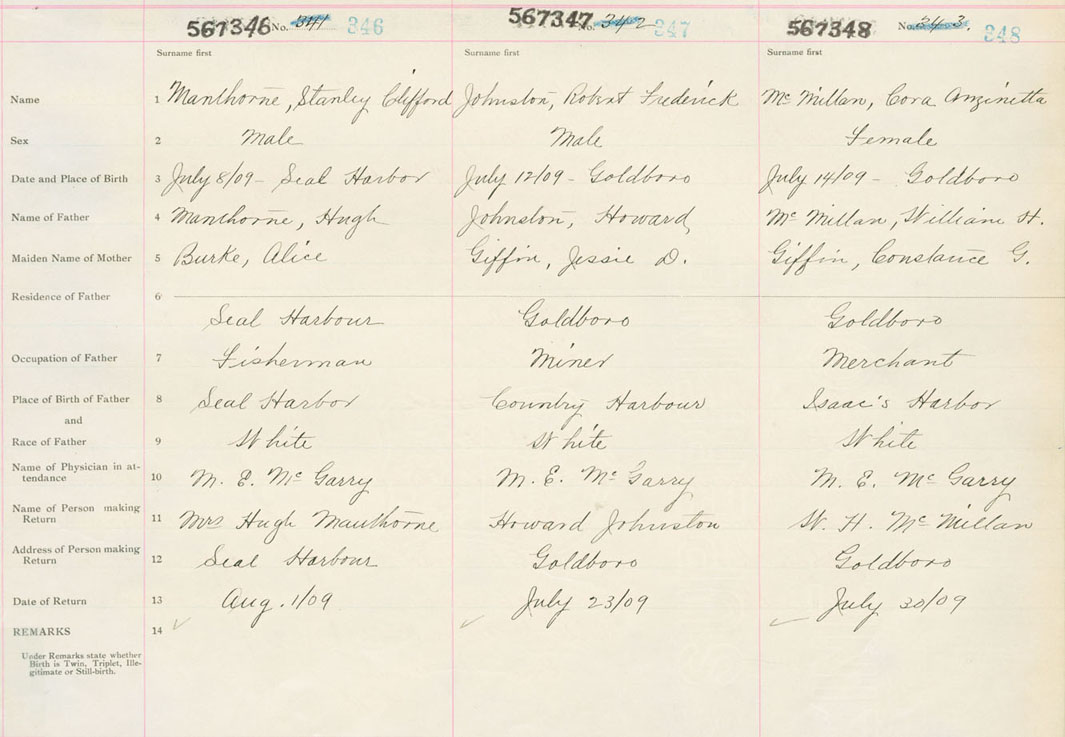 567346 No. 341 346 567347 No. 342 347 567348 No. 343. 348
Surname first Surname first Surname first
Name 1 Manthorne, Stanley Clifford Johnston, Robert Frederick Mc Millan, Cora Anzinetta
Sex 2 Male Male Female
Date and Place of Birth 3 July 8/09 - Seal Harbor July 12/09 - Goldboro July 14/09 - Goldboro
Name of Father 4 Manthorne, Hugh Johnston, Howard Mc Millan, William H.
Maiden Name of Mother 5 Burke, Alice Giffin, Jessie D. Giffin, Constance G.
Residence of Father 6
Seal Harbour Goldboro Goldboro
Occupation of Father 7 Fisherman Miner Merchant
Place of Birth of Father 8 Seal Harbor Country Harbour Isaac's Harbor
and
Race of Father 9 White White White
Name of Physician in at-
tendance 10 M. E. Mc Garry M. E. Mc Garry M. E. Mc Garry
Name of Person making
Return 11 Mrs Hugh Manthorne Howard Johnston W. H. Mc Millan
Address of Person making
Return 12 Seal Harbour Goldboro Goldboro
Date of Return 13 Aug. 1/09 July 23/09 July 30/09
REMARKS 14
Under Remarks state whether
Birth is Twin, Triplet, Ille-
gitimate or Still-birth.